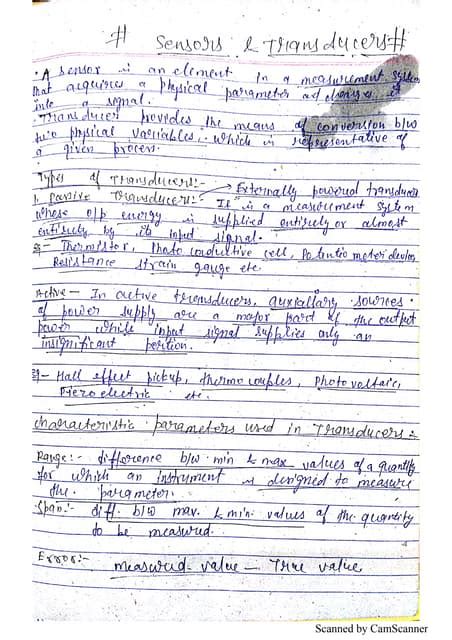 # Sensors & Transducers #
• A sensor is an element in a measurement system
that acquires a physical parameter and changes it
into a signal.
Transducer provides the means of conversion b/w
two physical variables. which is representative of
a given process.
Types of Transducers:-
1. Passive Transducer:- → Externally powered transducer
It is a measurement system
whose o/p energy is supplied entirely or almost
entirely by its input signal.
Eg- Thermistor, Photo conductive cell, Potentiometer device,
Resistance strain gauge etc.
Active - In active transducers, auxiallary sources
of power supply are a major part of the output
power while input signal supplies only an
insignificant portion.
Eg- Hall effect pickup, thermocouples, Photo voltaic,
Piezo electric etc.
characteristic parameters used in Transducers:-
Range:- difference b/w min & max values of a quantity
for which an instrument is designed to measure
the parameter.
Span:- diff. b/w max. & min. values of the quantity
to be measured.
Error:- measured value - True value
Scanned by CamScanner